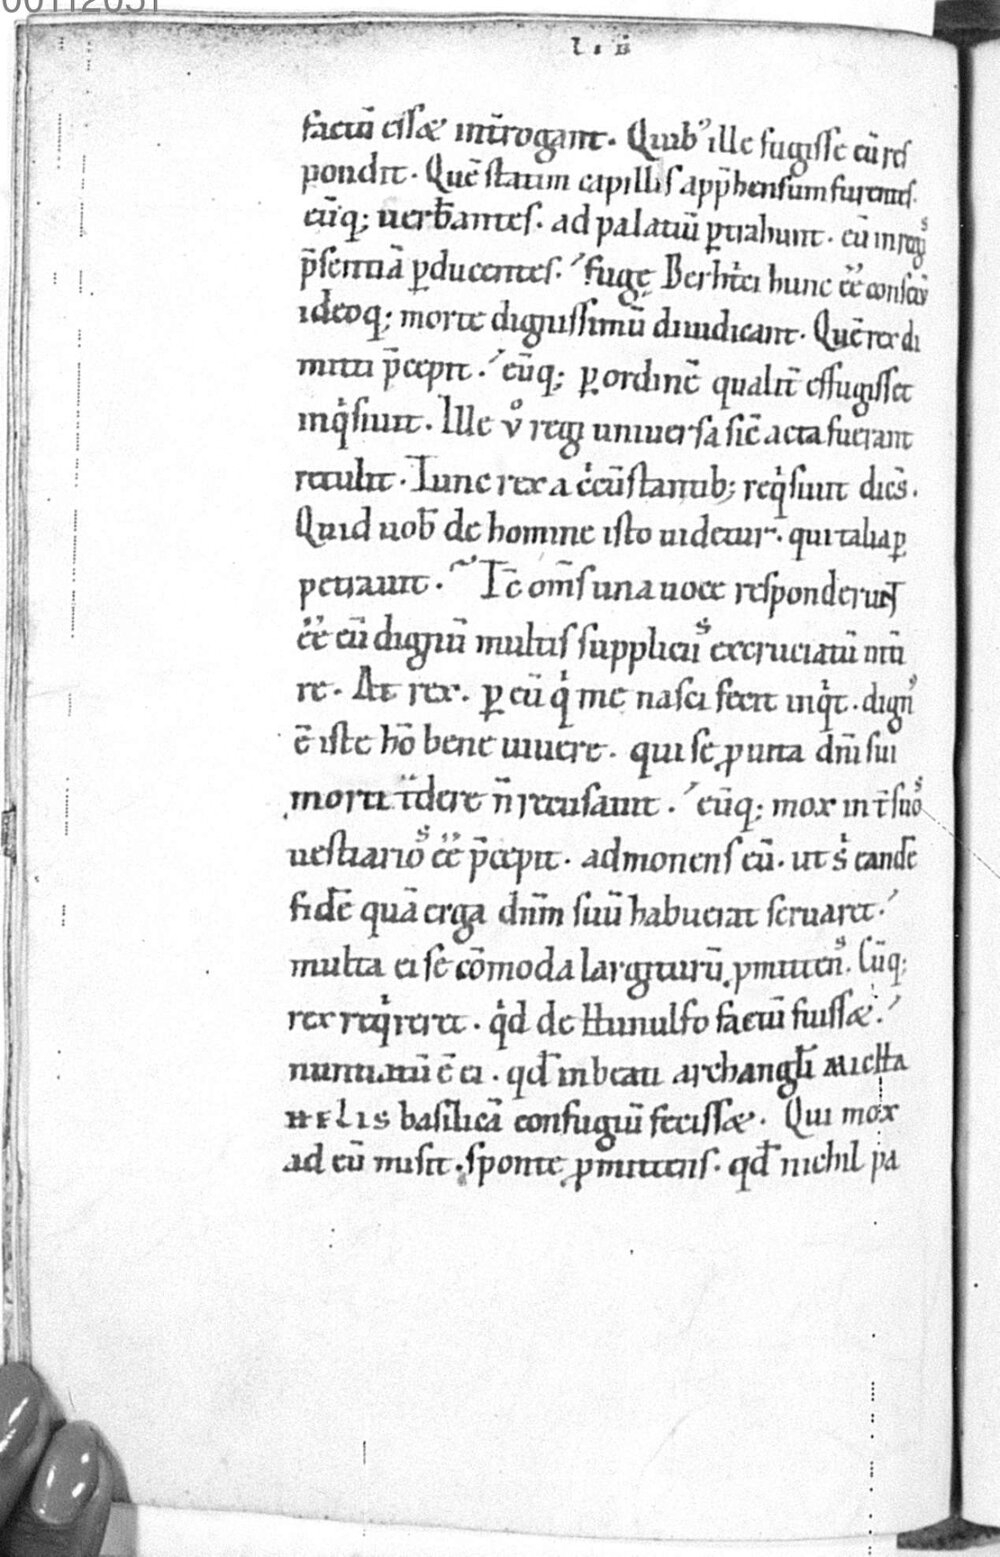 L · II
factū eissæ int̄rogant · Quib’ ille fugisse eū res
pondit · Quē statim capillis app̄hensum furentes ·
eūq; uerb̄antes · ad palatiū ꝑtrahunt · eū in regis
p̄sentiā ꝑducentes · fugę Berht̍ei hunc ēē consciū
ideoq; morte dignissimū diiudicant · Quē rex di
mitti p̄cepit · eūq; ꝑ ordinē qualit̄ effugisset
inqͥsiuit · Ille v̊ regi uniuersa sic̄ acta fuerant
retulit · Tunc rex a cͥcūstantib; reqͥsiuit dic̄s ·
Quid uob̄ de homine isto uidetur · qui talia ꝑ
petrauit · Tc̄ om̄s una uoce responderunt
ēē eū dignū multis suppliciis excruciatū mū
re · At rex · ꝑ eū qͥ me nasci fecit inqͥt · dign’
ē iste hō bene uiuere · qui se ꝓ uita dn̄i sui
morti t̄dere n̄ recusauit · eūq; mox int̄ suos
uestiarios ēē p̄cepit · admonens eū · ut sͥ eandē
fidē quā erga dn̄m suū habuerat seruaret ·
multa ei se cōmoda largiturū ꝓmittens · Cūq;
rex reqͥreret · qͥd de Hunulfo factū fuissæ ·
nuntiatū ē ei · qd̄ in beati archangl̄i MICHA
HELIS basilicā confugiū fecissæ · Qui mox
ad eū misit · sponte ꝓmittens · qd̄ nichil pa